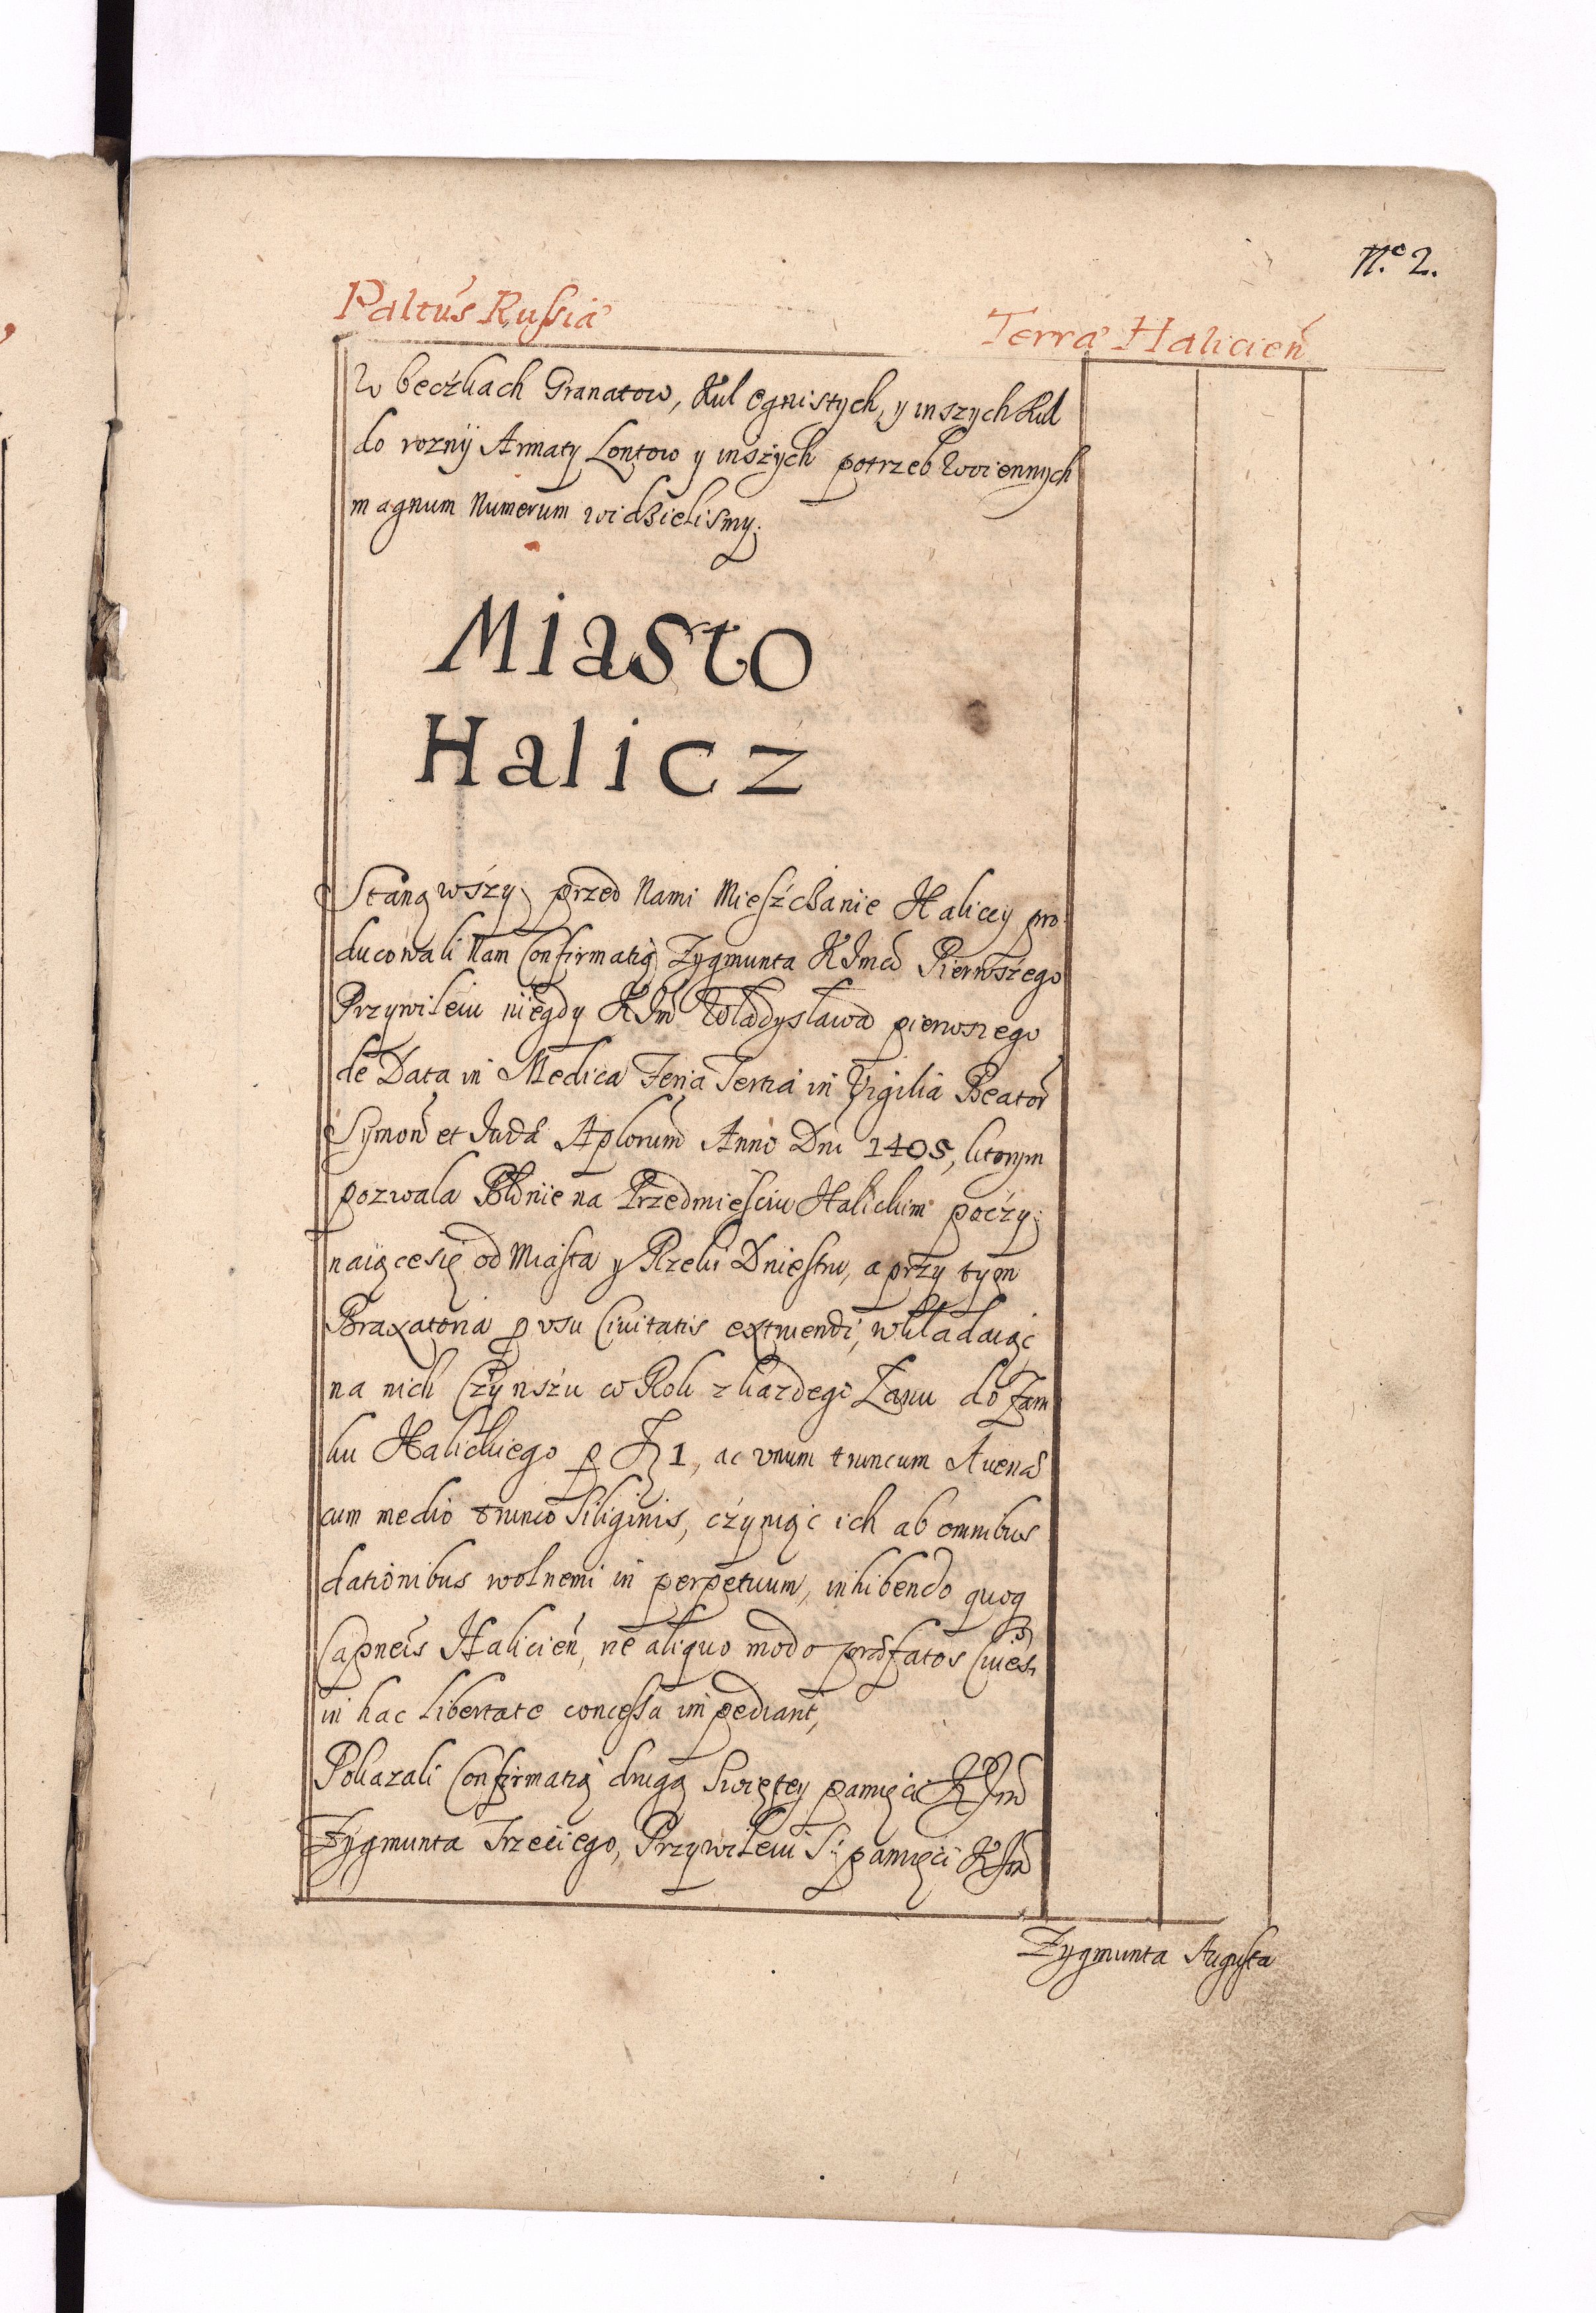 N.º 2.
Paltus Russiæ
Terræ Halicien
W beczkach Granatow, Kul Ognistych, y inszych Kul
do rozny Armaty Lontow y inszych potrzeb Woiennych
magnum Numerum widzielismy.
Miasto
Halicz
Stanąwszy przed Nami Mieszczanie Haliccy pro
ducowali Nam Confirmatią Zygmunta KJmci Pierwszego
Przywileiu niegdy KJm Władysława pierwszego
de Data in Medica Feria Tertia in Vigilia Beator
Symon et Judæ Aplorum Anno Dni 1405, ktorym
pozwala Błonie na Przedmiesciu Halickim poczy
naiącesię od Miasta y Rzeki Dniestru, a przy tym
Braxatoria p usu Civitatis extruendi, wkładaiąc
na nich Czynszu co Rok z kazdego Łanu do Zam
ku Halickiego p 1, ac unum truncum Avenæ
cum medio trunco Siliginis, czyniąc ich ab omnibus
dationibus wolnemi in perpetuum, inhibendo quoq
Capneis Halicien, ne aliquo modo præfatos Cives
in hac libertate concessa impediant,
Pokazali Confirmatią drugą Swiętey pamięci KJm
Zygmunta Trzeciego, Przywileiu S: pamięci KJm
Zygmunta Augusta